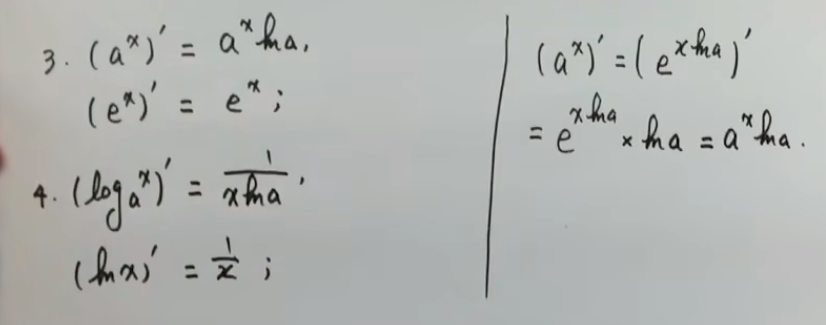 3. (aˣ)′ = aˣ ln a,
(eˣ)′ = eˣ ;
4. (logₐx)′ = 1/(x ln a),
(ln x)′ = 1/x ;
(aˣ)′ = (e^(x ln a))′
= e^(x ln a) × ln a = aˣ ln a.